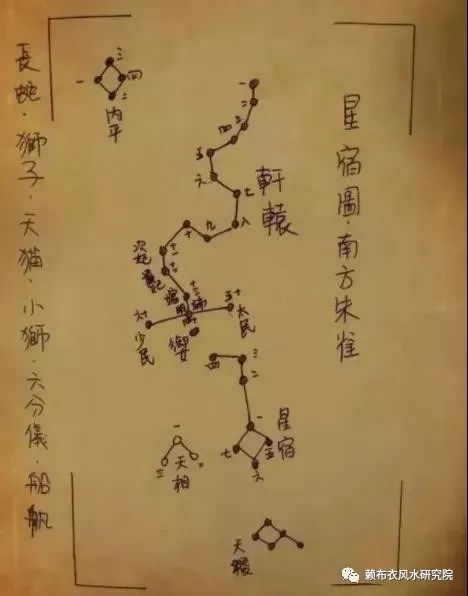 星宿圖·南方朱雀
三
一 四
二
內平
一
二
三
四
五
六
七
軒轅
八
九
十
次妃
十一
十二
十三
十五
太民
十六
少民
御女
四 三
二
一
星宿
七 五
六
天相
一
三 二
天稷
長蛇·獅子·天猫·小獅·六分儀·船帆
赖布衣风水研究院